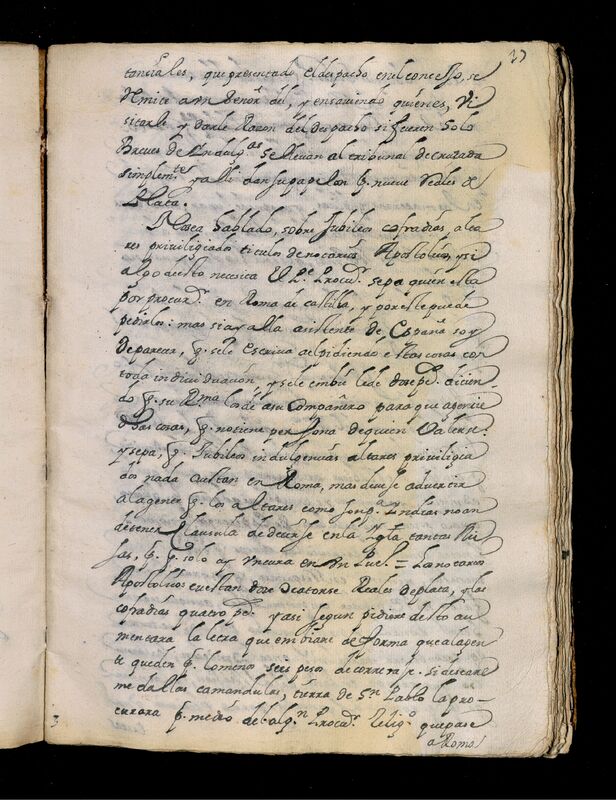 37
tanciales, que presentado el despacho en el concejo, se
remite a un Señor del, y en saviendo quien es, vi
sitarle y darle Razon del despacho si fueren solo
Breves de Indulg.as se llevan al tribunal de cruzada
simplem.te y alli dan su papel con p. nueve Reales de
Plata.
sea hablado, sobre Jubileos cofradias, alta
res priviligiados titulos de notarios Apostolicos, y si
algo de esto necesita el P.e Procu.r sepa quien esta
por procur.r en Roma de castilla, y por este puede
pedirlos: mas si ay alla asistente de España soy
de parecer, q. se le escriva pidiendo estas cosas con
toda individuacion, y se le embie dose p.s dicien
do q. su R.ma lo de a su Compañero para que agencie
dichas cosas, q. no tiene persona de quien valerse.
y sepa, q. Jubileos indulgencias altares priviligia
dos nada cuestan en Roma, mas devese advertir
al agente q. los altares como son p.a Indias no an
de tener clausula de decirse en la Igl.a tantas Mi
sas, p. q. solo ay un cura en un Pue.o = La notarios
Apostolicos cuestan dose o catorse Reales de plata, y las
cofradias quatro p.s y asi segun pidiere desto au
mentara la letra que embiare de forma que al agen
te queden p. lo menos seis pesos de corretaje. si deseare
medallas camandulas, tierra de S.n Pablo la pro
curara p. medio de alg.n Procu.r Relig.o que pase
a Roma